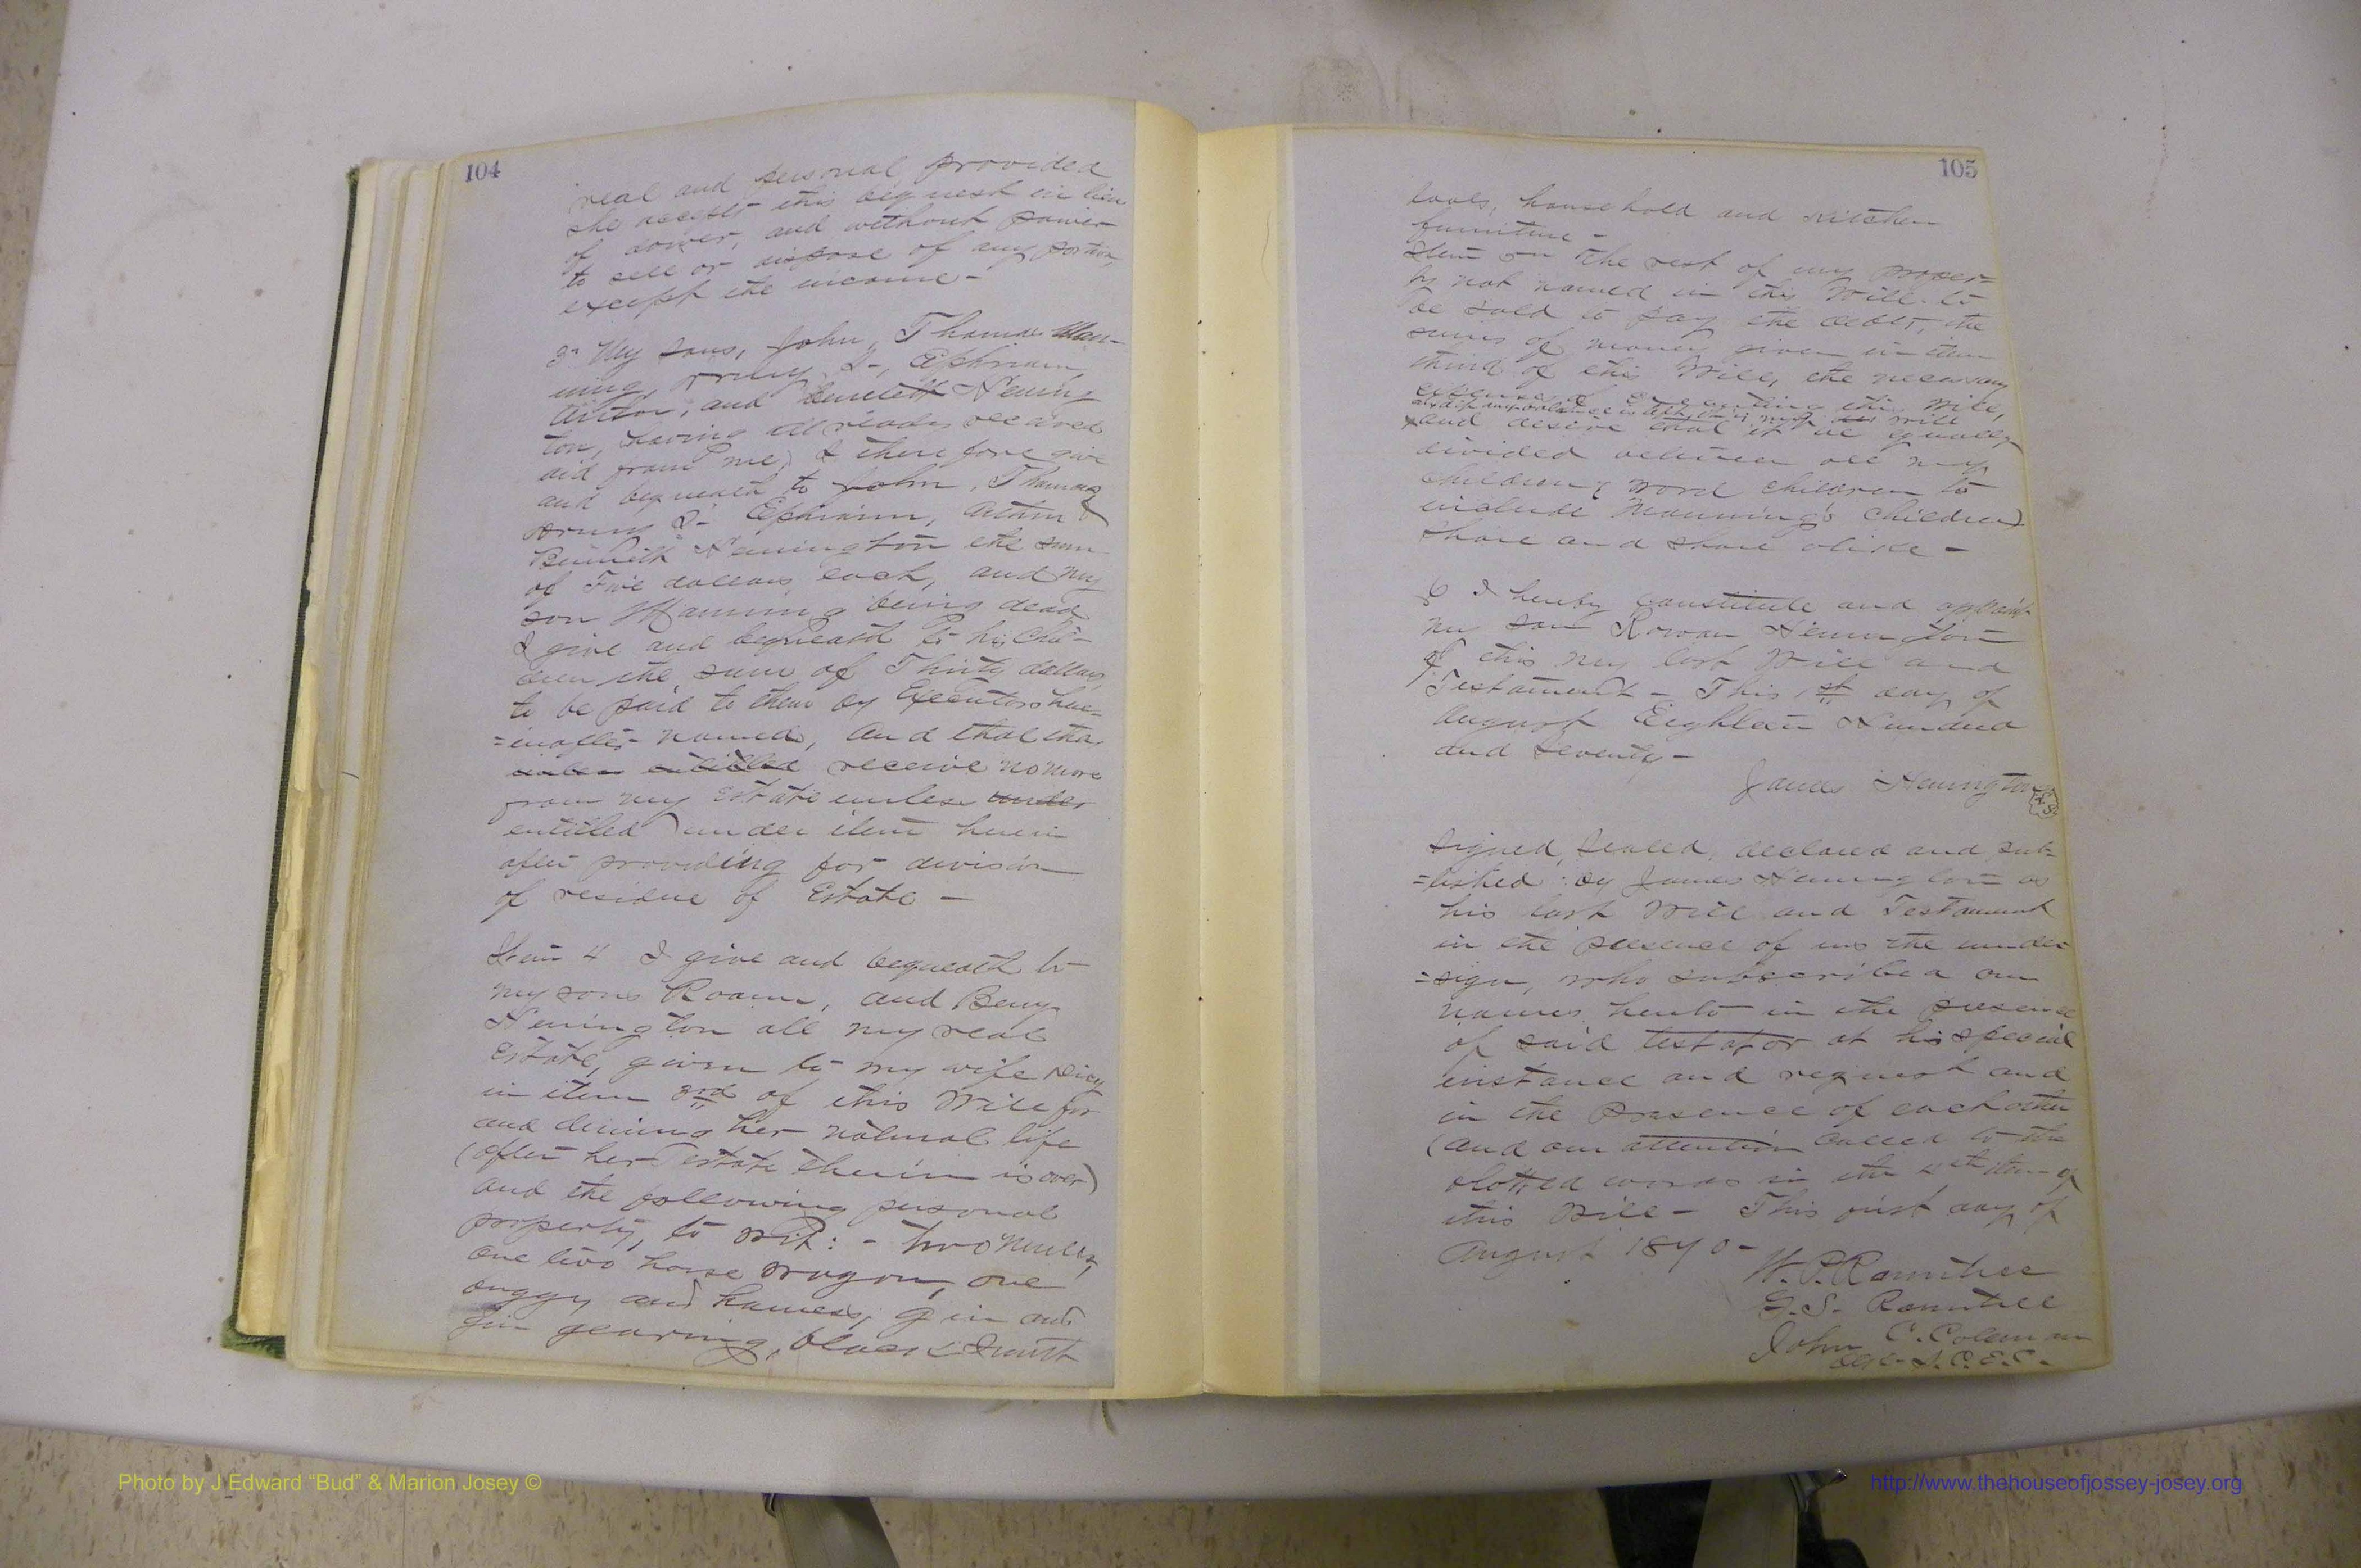 104
real and personal, provided
she accepts this bequest in lieu
of dower, and without power
to sell or dispose of any portion,
except the income -
3rd My sons, John, Thomas Man-
ning, Ephriam,
and Bennett Hening
ton, having all ready received
aid from me, I therefore give
and bequeath to John, Thomas
Ephriam, &
Bennett Henington the sum
of Five dollars each, and my
son Manning being dead
I give and bequeath to his Chil-
dren the sum of Thirty dollars
to be paid to them by Executors here-
=inafter named, And that tha
receive no more
from my Estate unless under
entitled under item herein
after providing for division
of residue of Estate -
Item 4 I give and bequeath to
my sons Roann, and Benj.
Henington all my real
Estate, given to my wife Dicy
in item 2nd of this Will for
and during her natural life
(after her Estate therein is over)
and the following personal
property, to wit: - two Mules,
One two horse wagon, one
buggy and harness, gin and
gin gearing, black Smith
105
tools, household and Kitchen
furniture -
Item 5th The rest of my proper=
ty not named in this Will to
be sold to pay the debts, the
sums of money given in item
third of this Will, the necessary
expense of executing this Will,
and if any balance is left, it is my will
and desire that it be equally
divided between all my
Children (word children to
include Manning's Children)
Share and Share alike -
6 I hereby Constitute and appoint
my son Rowan Henington
of this my last Will and
Testament - This 1st day of
August Eighteen Hundred
and Seventy -
James Henington
L.S.
Signed, Sealed, declared and pub=
=lished by James Henington as
his last Will and Testament
in the presence of us the under
=sign, who subscribed our
names hereto in the presence
of said testator at his special
instance and request and
in the presence of each other
(and our attention called to the
blotted words in the 4th item of
this Will - This first day of
August 1870 -
W. P. Rountree
G. S. Rountree
John C. Coleman
S.C.E.C.
Photo by J Edward “Bud” & Marion Josey ©
http://www.thehouseofjossey-josey.org